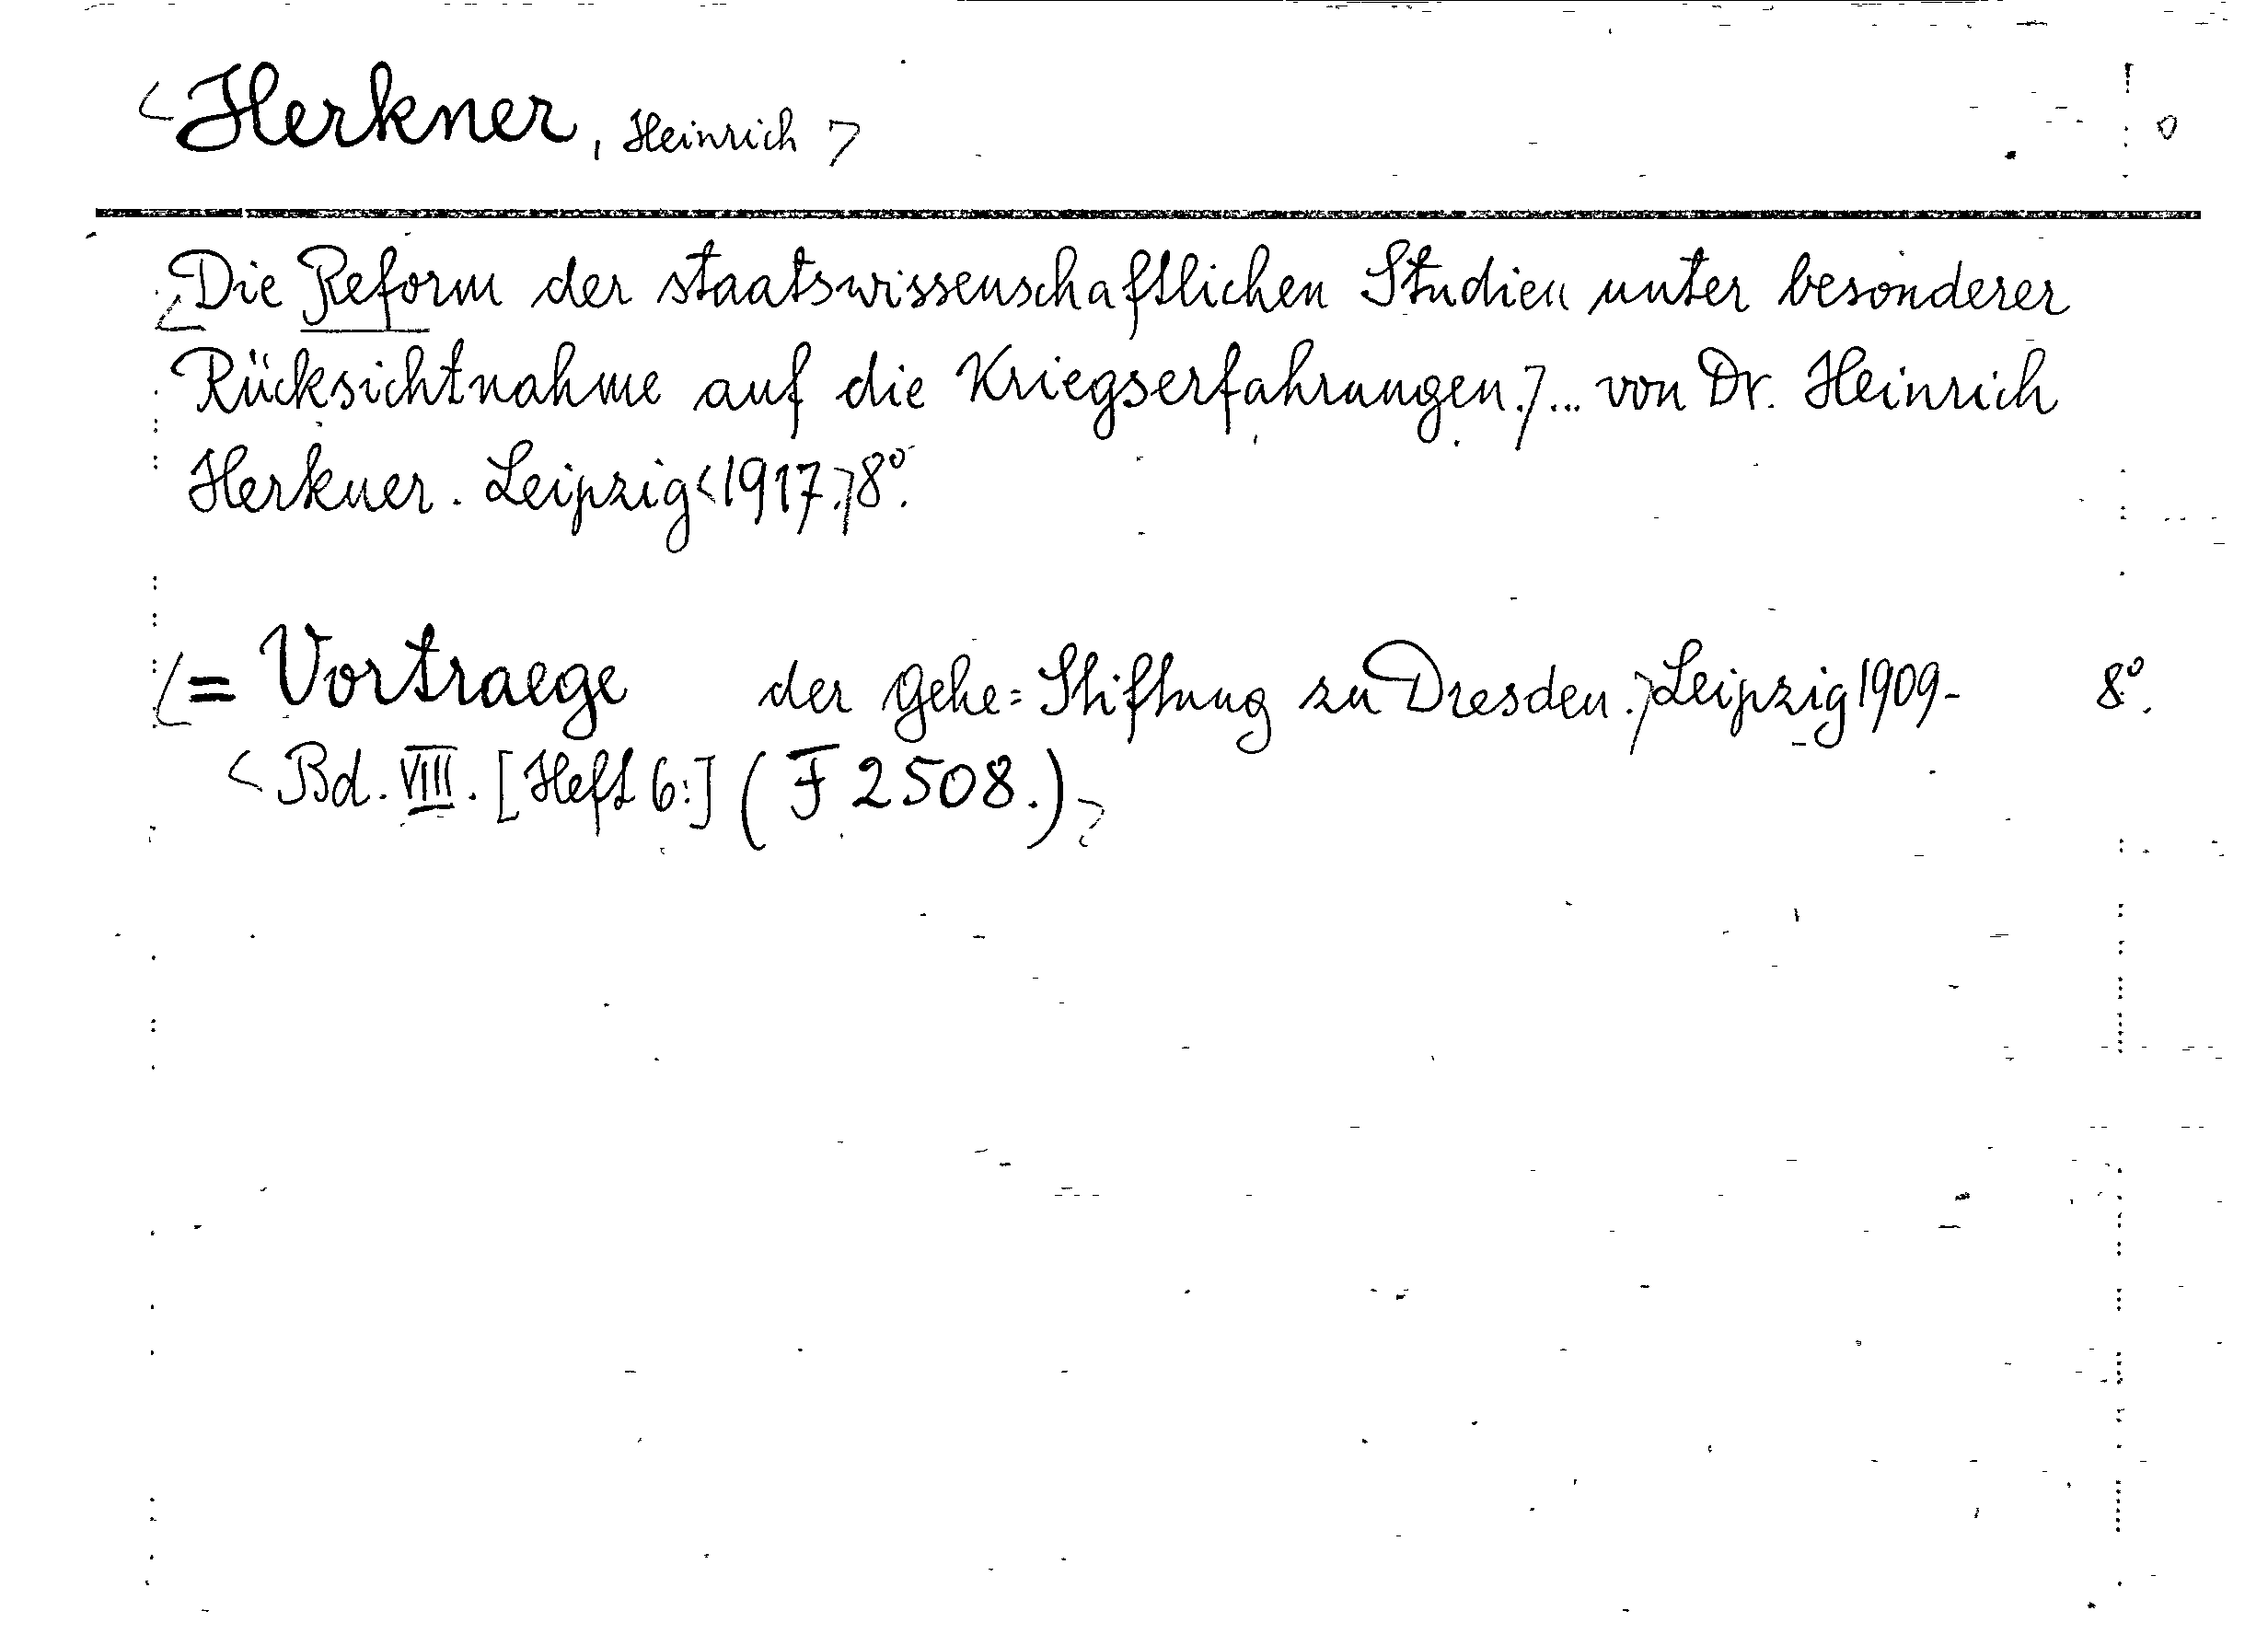 <Herkner, Heinrich>
<Die Reform der staatswissenschaftlichen Studien unter besonderer
Rücksichtnahme auf die Kriegserfahrungen.>... von Dr. Heinrich
Herkner. Leipzig<1917.>8°.
<= Vortraege der Gehe=Stiftung zu Dresden.>Leipzig 1909- 8°.
<Bd. VIII. [Heft 6:] (F 2508.)>